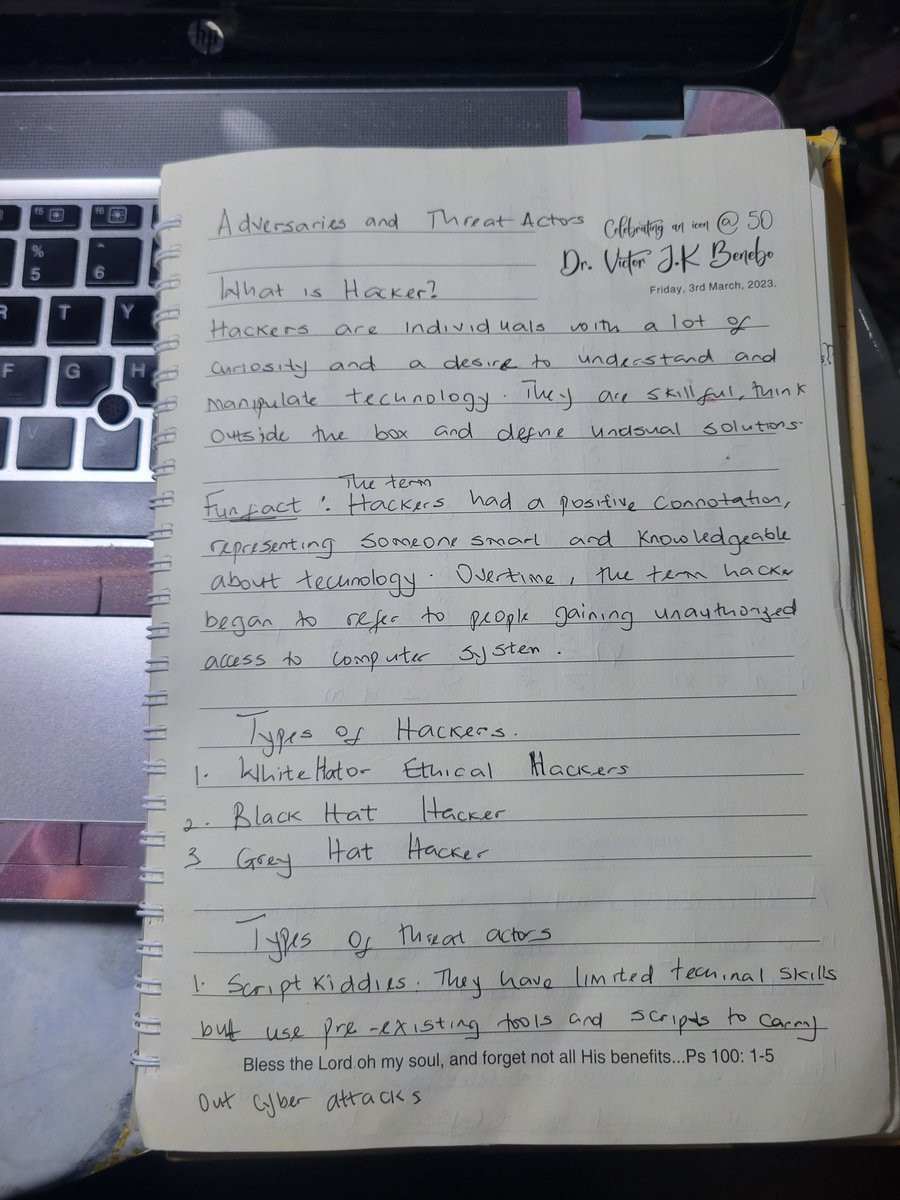 hp
f5
f6
%
5
^
6
R
T
Y
F
G
H
V
B
Adversaries and Threat Actors
Celebrating an icon @ 50
Dr. Victor J.K Benebo
Friday, 3rd March, 2023.
What is Hacker?
Hackers are individuals with a lot of
curiosity and a desire to understand and
manipulate technology. They are skillful, think
outside the box and define unusual solutions.
The term
Fun fact : Hackers had a positive connotation,
representing someone smart and knowledgeable
about technology. Overtime, the term hacker
began to refer to people gaining unauthorized
access to computer system.
Types of Hackers.
1. White Hat or Ethical Hackers
2. Black Hat Hacker
3 Grey Hat Hacker
Types of threat actors
1. Script Kiddies. They have limited techinal skills
but use pre-existing tools and scripts to carry
Bless the Lord oh my soul, and forget not all His benefits...Ps 100: 1-5
out cyber attacks